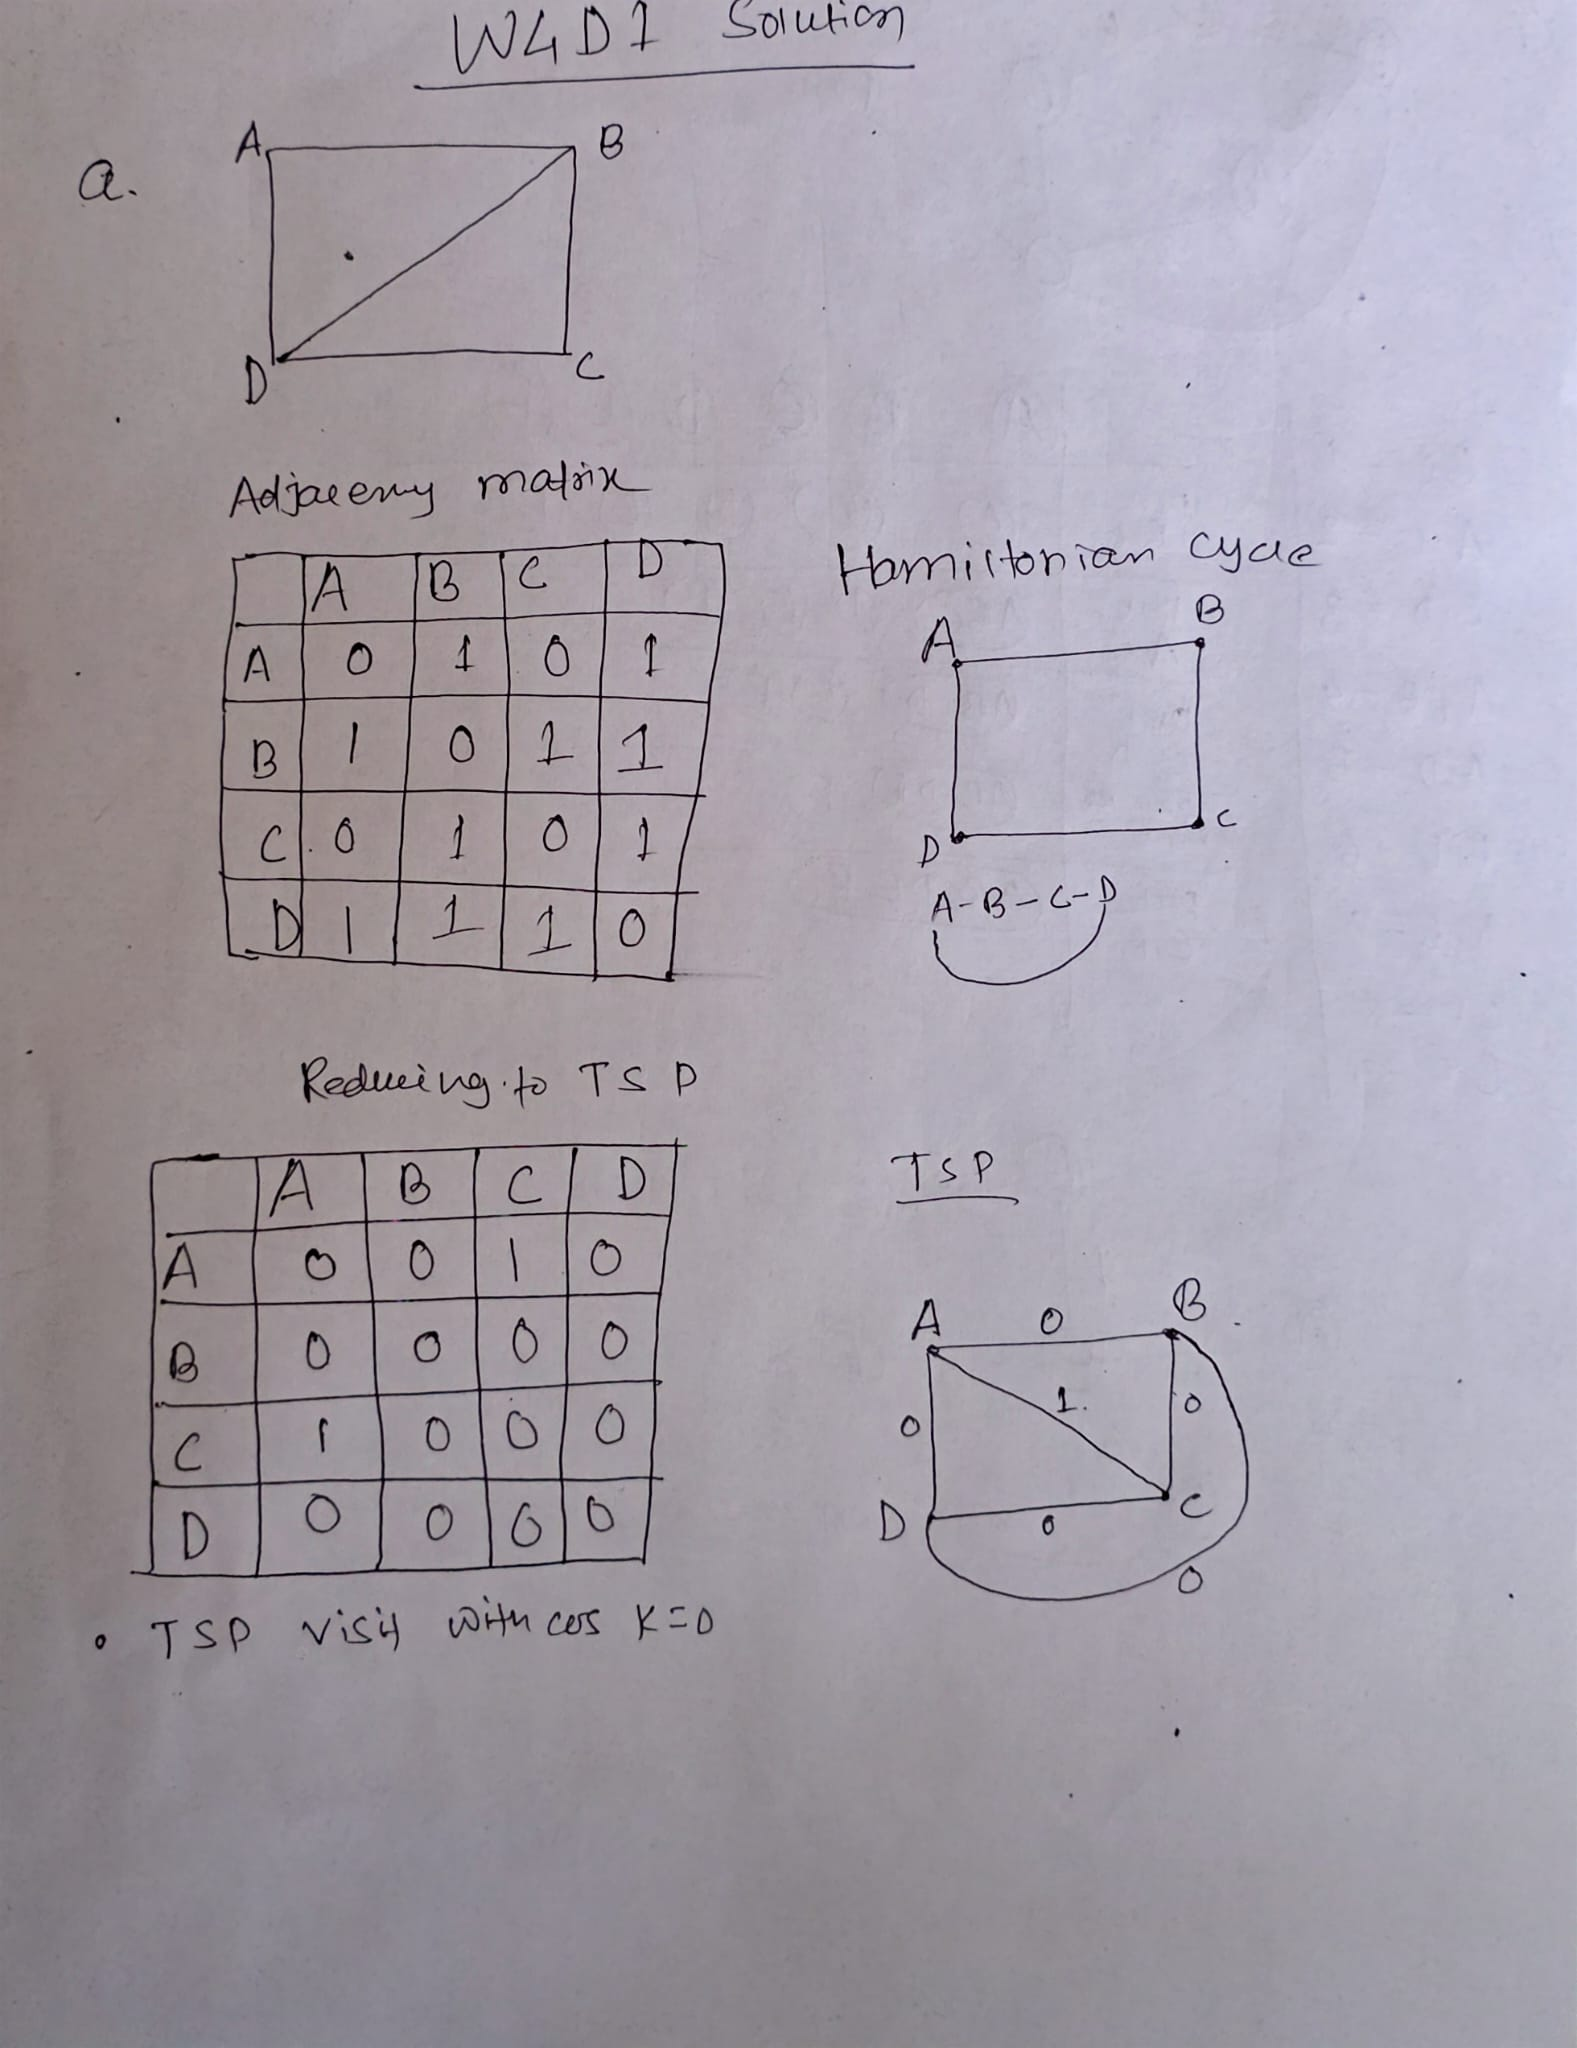 W4D1 Solution
a.
A B
D C
Adjacency matrix
A B C D
A 0 1 0 1
B 1 0 1 1
C 0 1 0 1
D 1 1 1 0
Hamiltonian Cycle
A B
D C
A-B-C-D
Reducing to TSP
A B C D
A 0 0 1 0
B 0 0 0 0
C 1 0 0 0
D 0 0 0 0
TSP
A 0 B
0 1. 0
D 0 C
0
• TSP visit with cos K=0